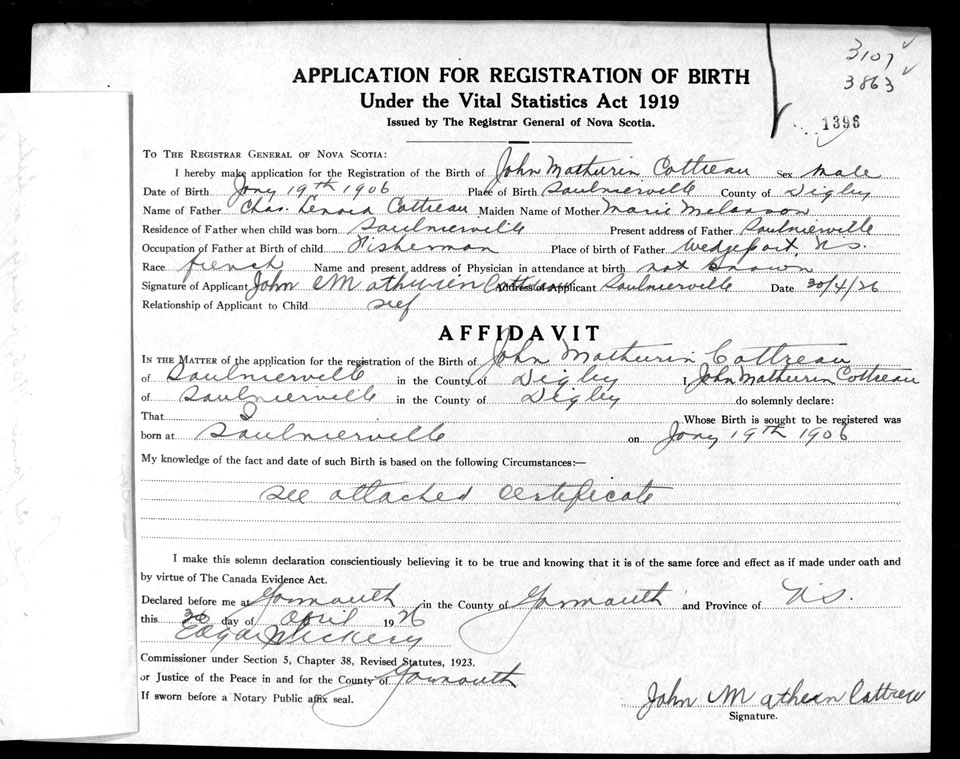 3107
3863
1396
APPLICATION FOR REGISTRATION OF BIRTH
Under the Vital Statistics Act 1919
Issued by The Registrar General of Nova Scotia.
TO THE REGISTRAR GENERAL OF NOVA SCOTIA:
I hereby make application for the Registration of the Birth of John Mathurin Cottreau Sex Male
Date of Birth Jany 19th 1906 Place of Birth Saulnierville County of Digby
Name of Father Chas. Cottreau Maiden Name of Mother Marie Melanson
Residence of Father when child was born Saulnierville Present address of Father Saulnierville
Occupation of Father at Birth of child Fisherman Place of birth of Father Wedgeport, N.S.
Race french Name and present address of Physician in attendance at birth not known
Signature of Applicant John Mathurien Address of Applicant Saulnierville Date 30/4/26
Relationship of Applicant to Child self
AFFIDAVIT
IN THE MATTER of the application for the registration of the Birth of John Mathurin Cottreau
of Saulnierville in the County of Digby I John Mathurin Cottreau
of Saulnierville in the County of Digby do solemnly declare:
That I Whose Birth is sought to be registered was
born at Saulnierville on Jany 19th 1906
My knowledge of the fact and date of such Birth is based on the following Circumstances:—
see attached certificate
I make this solemn declaration conscientiously believing it to be true and knowing that it is of the same force and effect as if made under oath and
by virtue of The Canada Evidence Act.
Declared before me at Yarmouth in the County of Yarmouth and Province of N.S.
this 30 day of April 1926
Commissioner under Section 5, Chapter 38, Revised Statutes, 1923.
or Justice of the Peace in and for the County of Yarmouth
If sworn before a Notary Public affix seal.
John Mathean Cottrew
Signature.